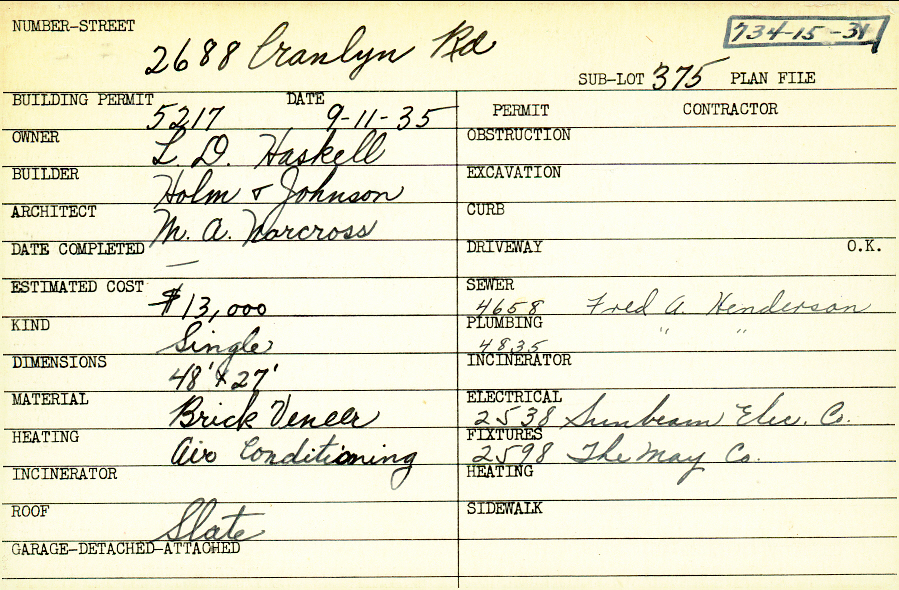 NUMBER-STREET
2688 Cranlyn Rd
734-15-31
SUB-LOT 375 PLAN FILE
BUILDING PERMIT 5217 DATE 9-11-35
OWNER L. D. Haskell
BUILDER Holm & Johnson
ARCHITECT M. A. Norcross
DATE COMPLETED —
ESTIMATED COST $13,000
KIND Single
DIMENSIONS 48' x 27'
MATERIAL Brick Veneer
HEATING Air Conditioning
INCINERATOR
ROOF Slate
GARAGE-DETACHED-ATTACHED
PERMIT CONTRACTOR
OBSTRUCTION
EXCAVATION
CURB
DRIVEWAY O.K.
SEWER
4658 Fred A. Henderson
PLUMBING
4835 " "
INCINERATOR
ELECTRICAL
2538 Sunbeam Elec. Co.
FIXTURES
2598 The May Co.
HEATING
SIDEWALK